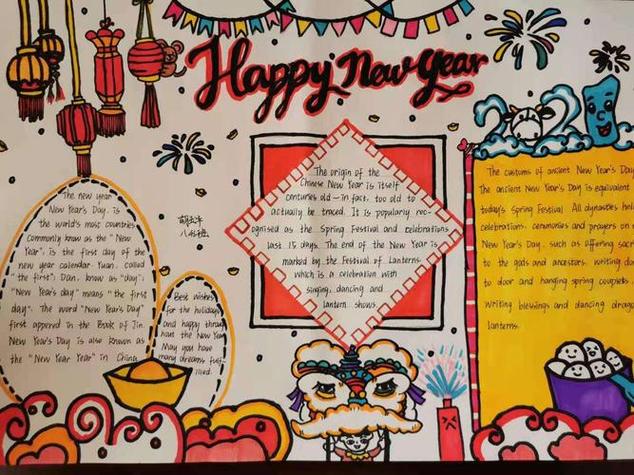 Happy New Year
2021
The new year
New Year's Day, is
the world's most countries
commonly know as the "New
Year", is the first day of the
new year calendar Yuan, called
"the first"; Dan, know as "day";
"New Year's day" means "the first
day". The word "New Year's Day"
first appered in the Book of Jin
New Year's Day is also known as
the "New Year Year" in China
Best wishes
for the holidays
and happy throu
hout the New Year
May you have
many dreams fulf
illed.
八
The origin of the
Chinese New Year is itself
centuries old - in fact, too old to
actually be traced. It is popularly rec-
ognised as the Spring Festival and celebrations
last 15 days. The end of the New Year is
marked by the Festival of Lanterns
which is a celebration with
singing, dancing and
lantern shows.
The customs of ancient New Year's Day
The ancient New Year's Day is equivalent
today's Spring Festival. All dynasties hel
celebrations, ceremonies and prayers on
New Year's Day, such as offering sacr
to the gods and ancestors, writing
to door and hanging spring couplets
writing blessings and dancing drag
lanterns.